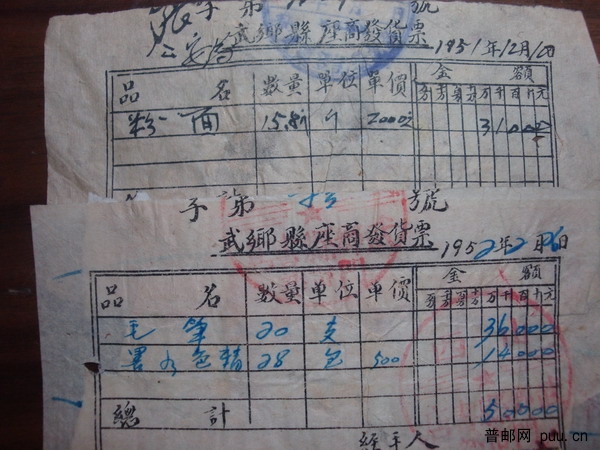 字第 號
公安局 武鄉縣座商發貨票 1951年12月16日
品名 數量 單位 單價 金額
万千百十元
粉面 15.5斤 斤 2000元 31000
字第 號
武鄉縣座商發貨票 1952年2月26日
品名 數量 單位 單價 金額
万千百十元
毛筆 20 支 36000
墨水色精 28 包 500 14000
總計 50000
經手人
普邮网 puu.cn